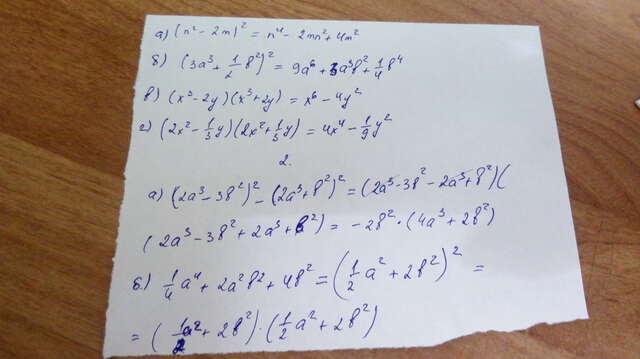 а) (n² - 2m)² = n⁴ - 2mn² + 4m²
б) (3a³ + 1/2 b²)² = 9a⁶ + 3a³b² + 1/4 b⁴
в) (x³ - 2y)(x³ + 2y) = x⁶ - 4y²
г) (2x² - 1/3 y)(2x² + 1/3 y) = 4x⁴ - 1/9 y²
2.
а) (2a³ - 3b²)² - (2a³ + b²)² = (2a³ - 3b² - 2a³ + b²)(
(2a³ - 3b² + 2a³ + b²) = -2b² · (4a³ + 2b²)
б) 1/4 a⁴ + 2a²b² + 4b² = (1/2 a² + 2b²)² =
= (1/2 a² + 2b²) · (1/2 a² + 2b²)